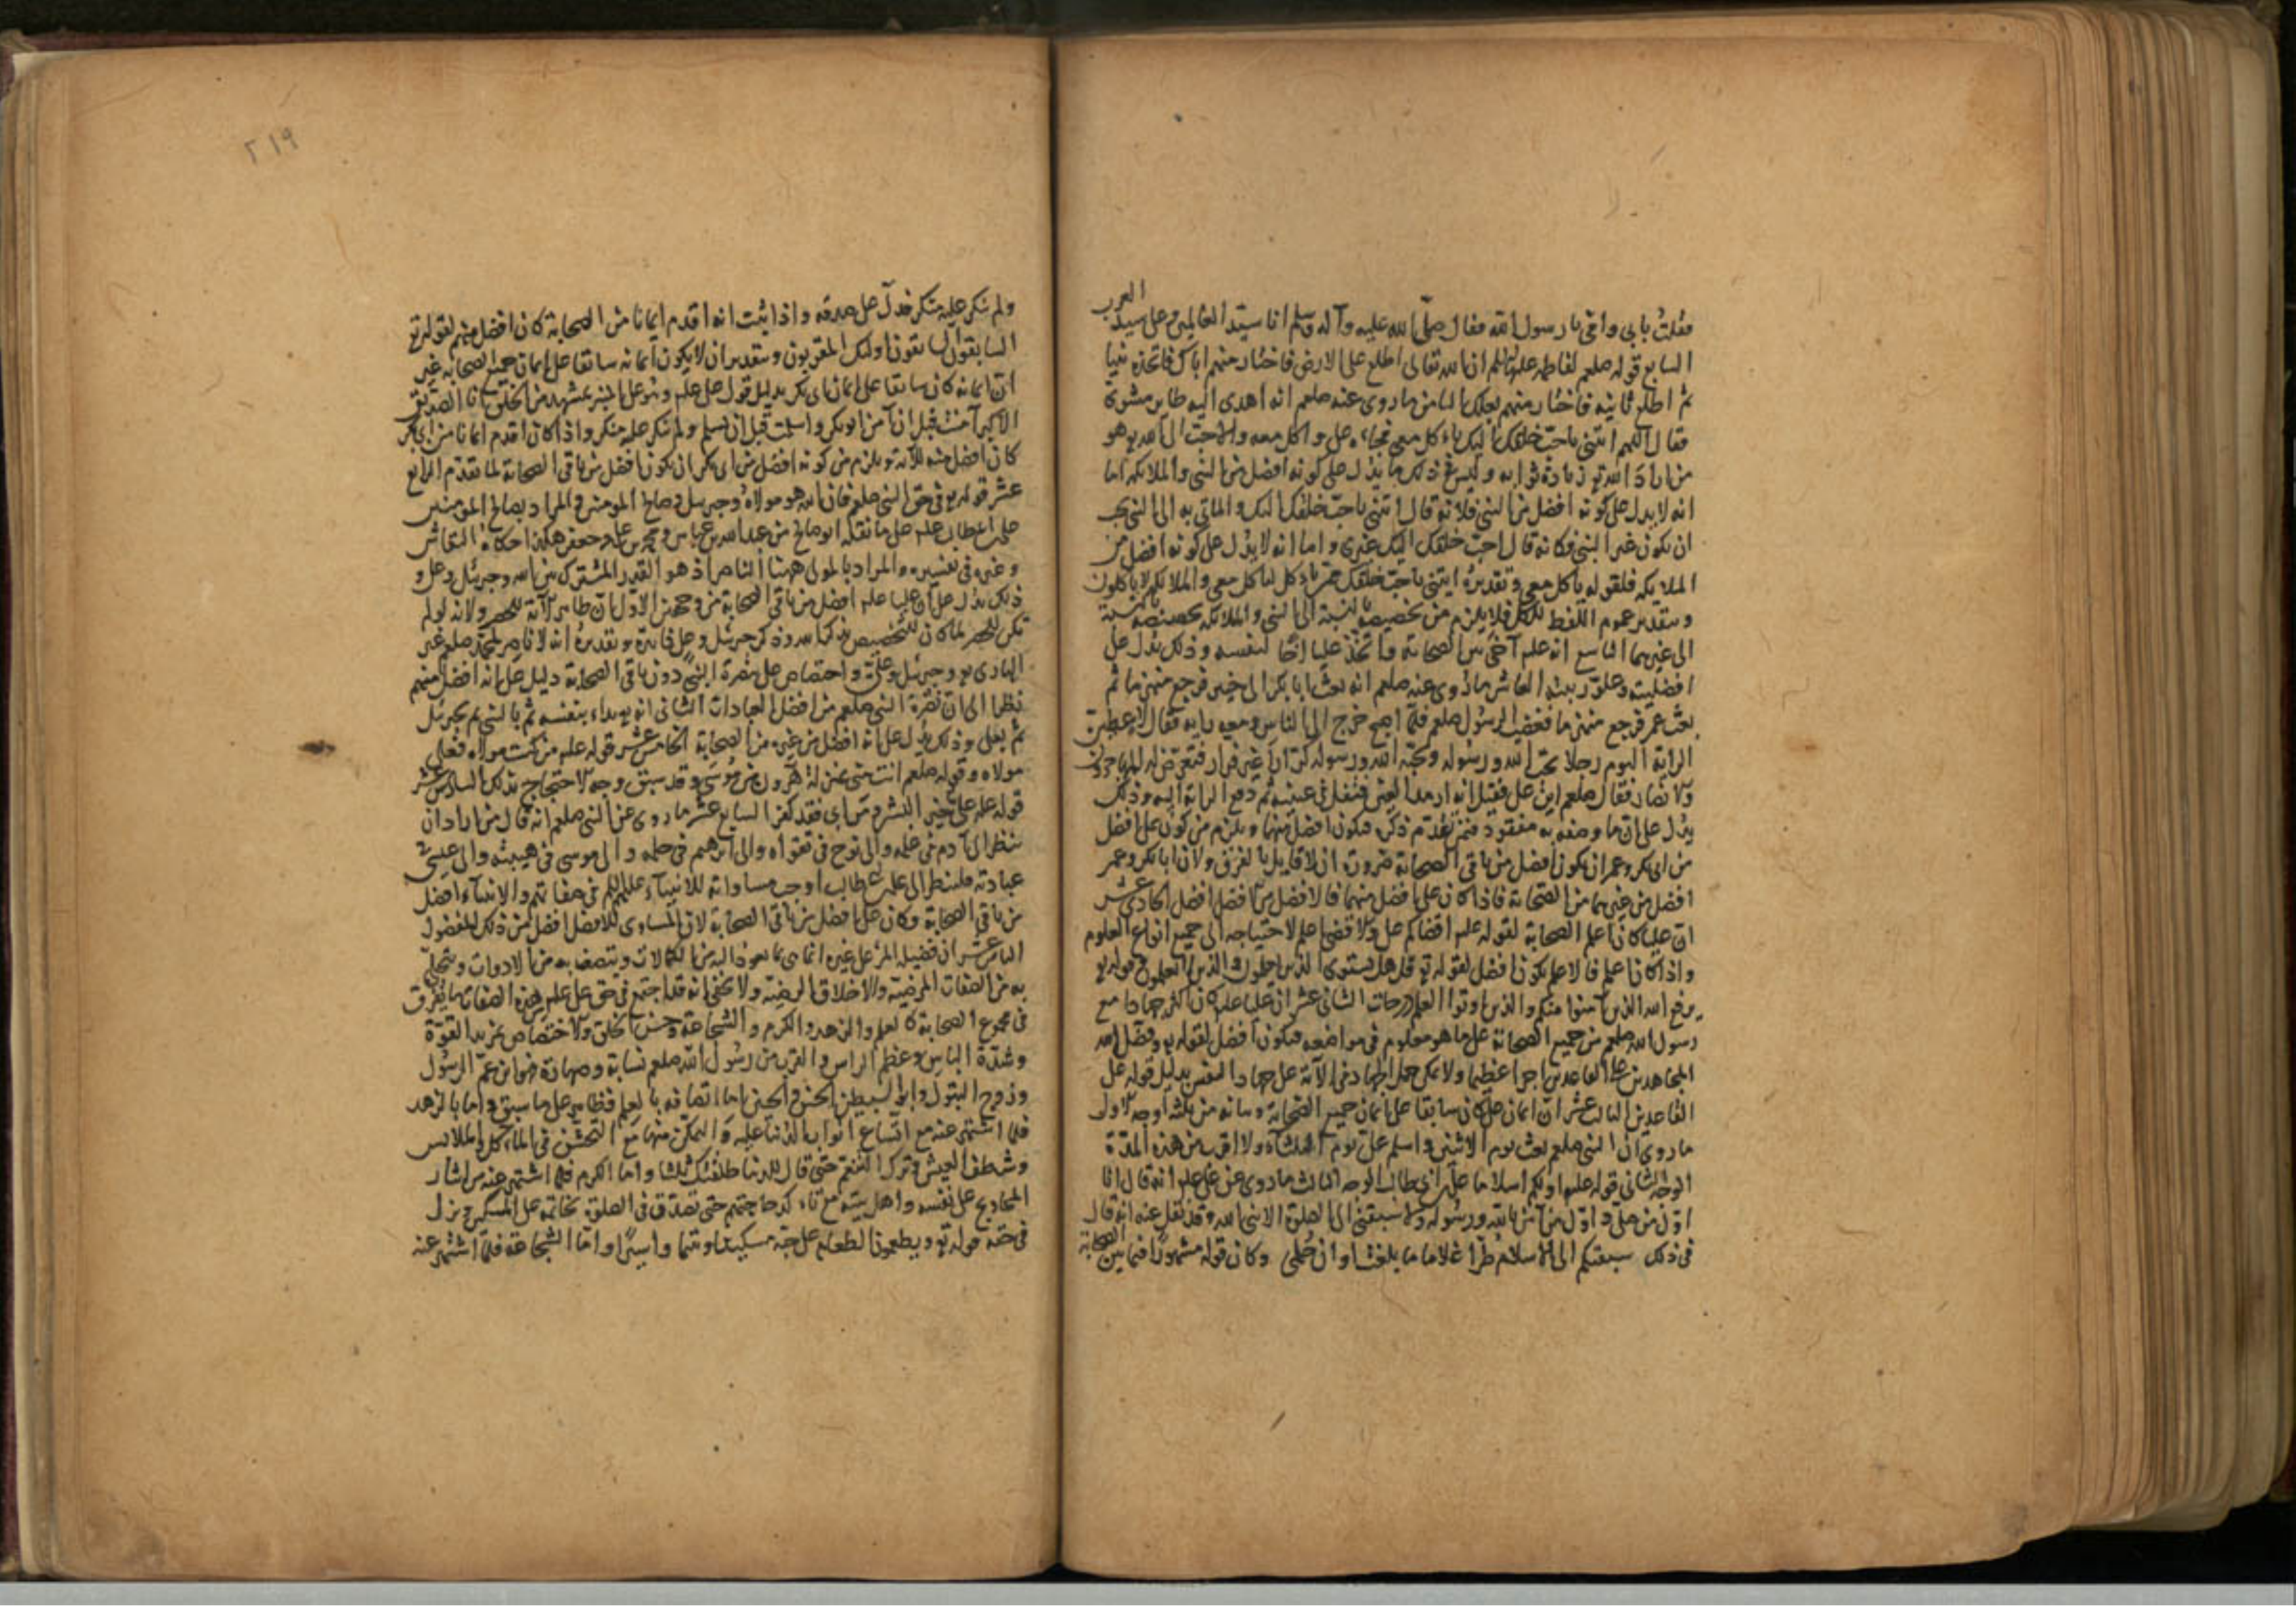 العرب
فقلت بابي وامي يا رسول الله فقال صلى الله عليه وآله وسلم انا سيد العالمين وعلى سيد
السابع قوله صلعم لفاطمة عليها السلم ان الله تعالى اطلع على الارض فاختار منهم اباك فاتخذه نبيا
ثم اطلع ثانية فاختار منهم بعلك الثامن ما روى عنه صلعم انه اهدى اليه طاير مشوى
فقال اللهم ائتنى باحب خلقك اليك ياكل معى فجاءه على واكل معه والاحب الى الله تع هو
من اراد الله تع زيادة ثوابه وليس فى ذلك ما يدل على كونه افضل من النبى والملائكة اما
انه لا يدل على كونه افضل من النبى فلانه قال ائتنى باحب خلقك اليك والماتى به الى النبى يجب
ان يكون غير النبى فكانه قال احب خلقك اليك غيرى واما انه لا يدل على كونه افضل من
الملايكة فلقوله ياكل معى وتقديره ايتنى باحب خلقك ممن ياكل لياكل معى والملائكة لا ياكلون
وبتقدير عموم اللفظ للكل فلا يلزم من تخصيصه بالنسبة الى النبى والملائكة تخصيصه بالنسبة
الى غيرهما التاسع انه علم آخى بين الصحابة واتخذ عليا اخا لنفسه وذلك يدل على
افضليته وعلو رتبته العاشر ما روى عنه صلعم انه بعث ابا بكر الى خيبر فرجع منهزما ثم
بعث عمر فرجع منهزما فغضب الرسول صلعم فلما اصبح خرج الى الناس ومعه راية فقال لاعطين
الراية اليوم رجلا يحب الله ورسوله ويحبه الله ورسوله كرار غير فرار فتعرض له المهاجرون
والانصار فقال صلعم اين على فقيل انه ارمد العين فتفل فى عينيه ثم دفع الراية اليه وذلك
يدل على ان ما وصفه به مفقود فيمن تقدم ذكره فيكون افضل منهما ويلزم من كون على افضل
من ابى بكر وعمر ان يكون افضل من باقى الصحابة ضرورة ان لا قايل بالفرق ولان ابا بكر وعمر
افضل من غيرهما من الصحابة فاذا كان على افضل منهما فالافضل من الافضل افضل الحادى عشر
ان عليا كان اعلم الصحابة لقوله علم اقضاكم على والاقضى اعلم لاحتياجه الى جميع انواع العلوم
واذا كان اعلم فالاعلم يكون افضل لقوله تع قل هل يستوى الذين يعلمون والذين لا يعلمون وقوله تع
يرفع الله الذين آمنوا منكم والذين اوتوا العلم درجات الثانى عشر ان عليا علم كان اكثر جهادا مع
رسول الله صلعم من جميع الصحابة على ما هو معلوم فى مواضعه فيكون افضل لقوله تع وفضل الله
المجاهدين على القاعدين اجرا عظيما ولا يمكن حمل الجهاد فى الآية على جهاد النفس بدليل قوله على
القاعدين الثالث عشر ان ايمان على كان سابقا على ايمان جميع الصحابة وبيانه من ثلثة اوجه الاول
ما روى ان النبى صلعم بعث يوم الاثنين واسلم على يوم الثلثاء ولا اقرب من هذه المدة
الوجه الثانى قوله علم اولكم اسلاما على بن ابى طالب الوجه الثالث ما روى عن على علم انه قال انا
اول من صلى واول من آمن بالله ورسوله ولا سبقنى الى الصلوة الا نبى الله وقد نقل عنه انه قال
فى ذلك سبقتكم الى الاسلام طرا غلاما ما بلغت اوان حلمى وكان قوله مشهورا فيما بين الصحابة
٢١٩
ولم ينكر عليه منكر فدل على صدقه واذا ثبت انه اقدم ايمانا من الصحابة كان افضل منهم لقوله تع
السابقون السابقون اولئك المقربون وبتقدير ان لا يكون ايمانه سابقا على ايمان جميع الصحابة غير
ان ايمانه كان سابقا على ايمان ابى بكر بدليل قول على علم وهو على المنبر بمشهد من الخلق انا الصديق
الاكبر آمنت قبل ان آمن ابو بكر واسلمت قبل ان اسلم ولم ينكر عليه منكر واذا كان اقدم ايمانا من ابى بكر
كان افضل منه للآية ويلزم من كونه افضل من ابى بكر ان يكون افضل من باقى الصحابة لما تقدم الرابع
عشر قوله تع فى حق النبى صلعم فان الله هو مولاه وجبريل وصالح المومنين والمراد بصالح المومنين
على بن ابى طالب علم على ما نقله ابو صالح عن عبد الله بن عباس ومحمد بن على وجعفر هكذا حكاه النقاش
وغيره فى تفسيره والمراد بالمولى ههنا الناصر اذ هو القدر المشترك بين الله وجبريل وعلى و
ذلك يدل على ان عليا علم افضل من باقى الصحابة من وجهين الاول ان ظاهر الآية للحصر ولانه لو لم
تكن للحصر لما كان للتخصيص بذكر الله وذكر جبريل وعلى فايدة وتقديره انه لا ناصر لمحمد صلعم غير
البارى تع وجبريل وعلى واختصاص على بنصرة النبى دون باقى الصحابة دليل على انه افضل منهم
نظرا الى ان نصرة النبى صلعم من افضل العبادات الثانى انه تع بداء بنفسه ثم بالنبى ثم بجبريل
ثم بعلى وذلك يدل على انه افضل من غيره من الصحابة الخامس عشر قوله علم من كنت مولاه فعلى
مولاه وقوله صلعم انت منى بمنزلة هرون من موسى وقد سبق وجه الاحتجاج بذلك السادس عشر
قوله علم على خير البشر ومن ابى فقد كفر السابع عشر ما روى عن النبى صلعم انه قال من اراد ان
ينظر الى آدم فى علمه والى نوح فى تقواه والى ابرهيم فى حلمه والى موسى فى هيبته والى عيسى فى
عبادته فلينظر الى على بن ابى طالب اوجب مساواته للانبياء عليهم السلم فى صفاتهم والانبياء افضل
من باقى الصحابة وكان على افضل من باقى الصحابة لان المساوى للافضل افضل من ذلك المفضول
الثامن عشر ان فضيلة المرء على غيره انما هى بما يعود اليه من الكمالات ويتصف به من الادوات ويتحلى
به من الصفات المرضية والاخلاق الرضية ولا يخفى انه قد اجتمع فى حق على علم من هذه الصفات ما تفرق
فى مجموع الصحابة كالعلم والزهد والكرم والشجاعة وحسن الخلق والاختصاص بمزيد القوة
وشدة الباس وعظم المراس والقرب من رسول الله صلعم نسابة وصهارة فهو ابن عم الرسول
وزوج البتول وابو السبطين الحسن والحسين اما اتصافه بالعلم فظاهر على ما سبق واما بالزهد
فلما اشتهر عنه مع اتساع ابواب الدنيا عليه والتمكن منها مع التخشن فى الماكل والملابس
وشظف العيش وترك التنعم حتى قال للدنيا طلقتك ثلثا واما الكرم فلما اشتهر عنه من ايثار
المحاويج على نفسه واهل بيته مع حاجتهم حتى تصدق فى الصلوة بخاتمه على المسكين ونزل
فى حقه قوله تع ويطعمون الطعام على حبه مسكينا ويتيما واسيرا واما الشجاعة فلما اشتهر عنه